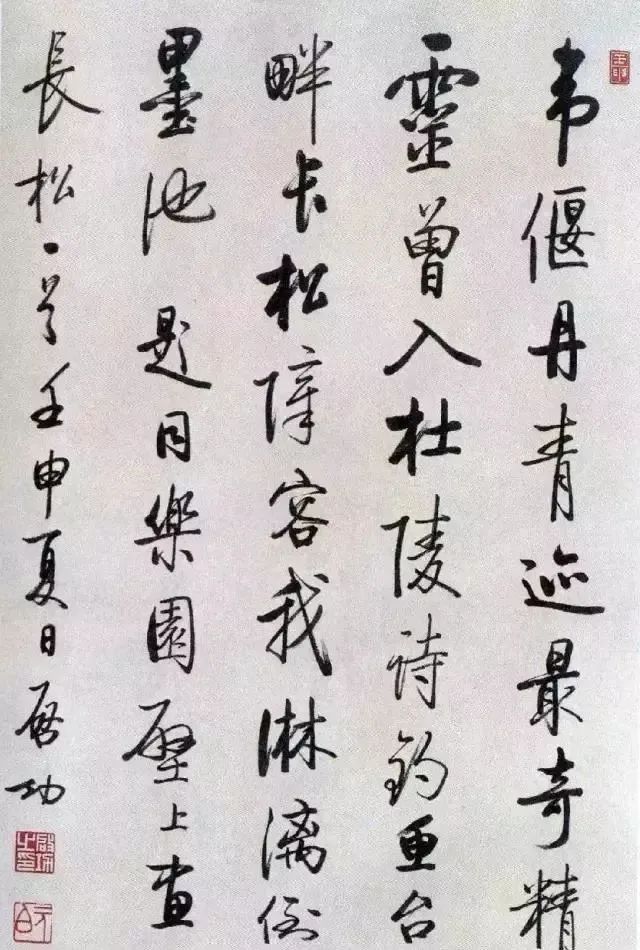 韦偃丹青迹最奇精
靈曾入杜陵诗钓鱼台
畔长松障容我淋漓倒
墨池 题同樂園壁上画
長松一首 壬申夏日 启功